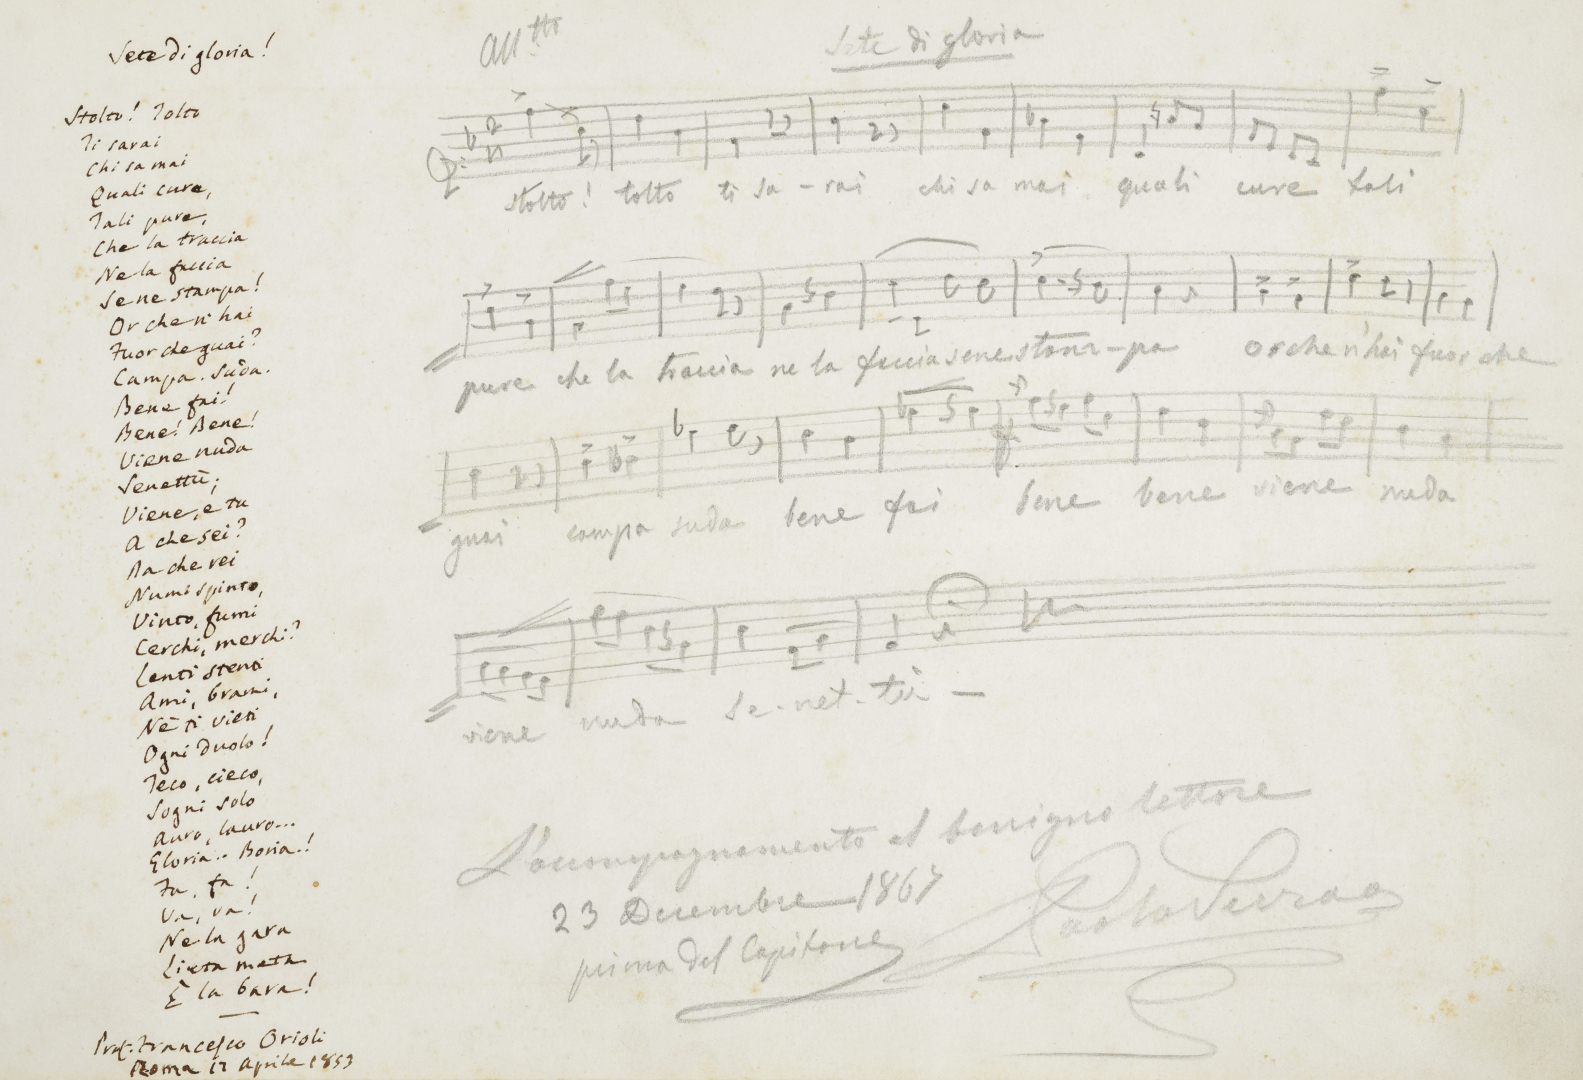 Sete di gloria!
Stolto! Tolto
Ti sarai
Chi sa mai
Quali cure,
Tali pure,
Che la traccia
Ne la faccia
Se ne stampa!
Or che n'hai
Fuor che guai?
Campa. Suda.
Bene fai!
Bene! Bene!
Viene nuda
Senettù;
Viene, e tu
A che sei?
Da che rei
Numi spinto,
Vinto, fumi
Cerchi, merchi?
Lenti stenti
Ami, brami,
Nè ti vieti
Ogni duolo!
Teco, cieco,
Sogni solo
Auro, lauro...
Gloria.. Boria.!
Fa, fa!
Va, va!
Ne la gara
Lieta meta
È la bara!
Prof. Francesco Orioli
Roma 12 Aprile 1853
All.tto
Sete di gloria
stolto! tolto ti sa-rai chi sa mai quali cure tali
pure che la traccia ne la faccia se ne stam-pa or che n'hai fuor che
guai campa suda bene fai bene bene viene nuda
viene nuda se-net-tù
L'accompagnamento al benigno lettore
23 Decembre 1867
prima del Capitone
Paolo Serrao